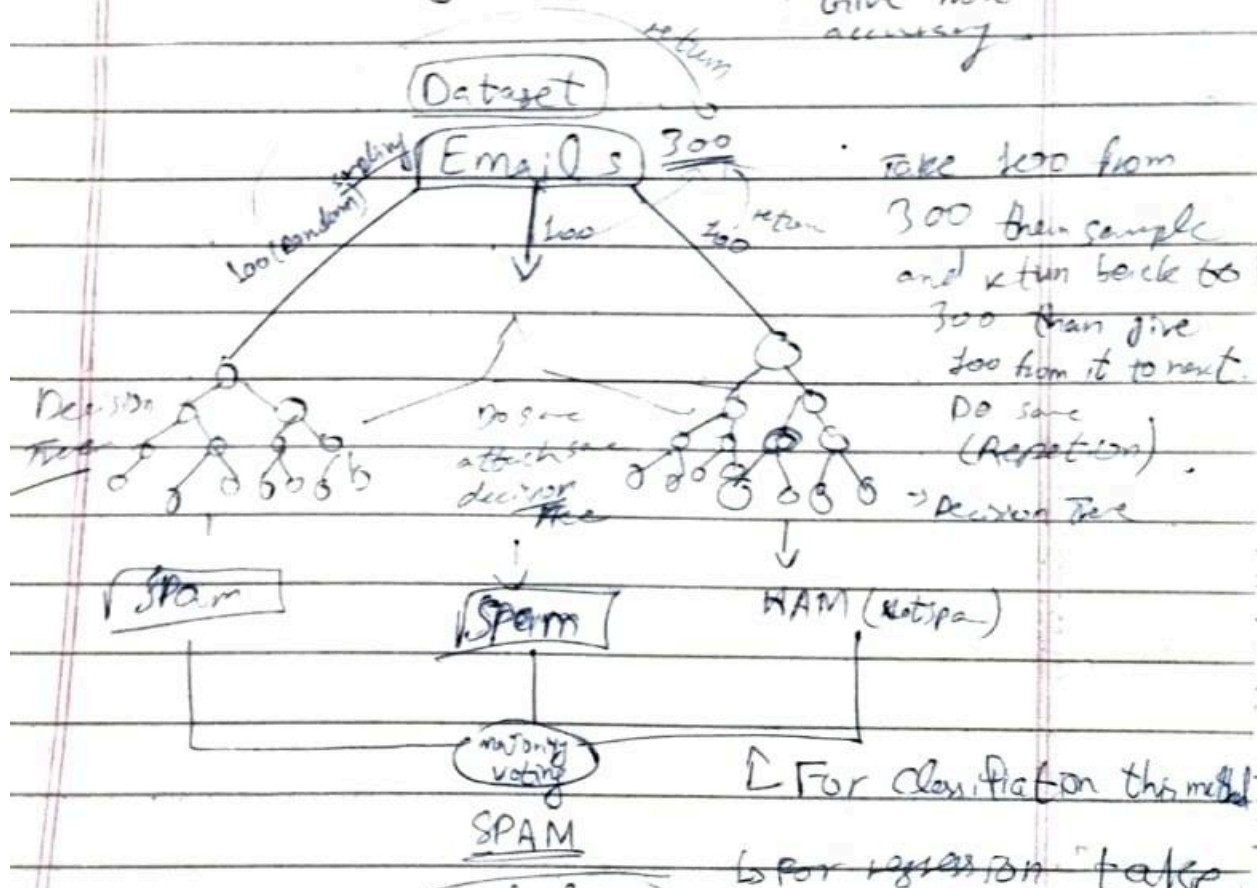 Give more
accuracy
return
Dataset
Emails 300
sampling
100 (Random)
100
100
return
Take 100 from
300 then sample
and return back to
300 than give
100 from it to next.
Do same
(Repetion).
Decision
Tree
Do same
attach same
decision
Tree
→ Decision Tree
Spam
Spam
HAM (Notspam)
majority
voting
SPAM
For Classifiation this method
↳ For regression take